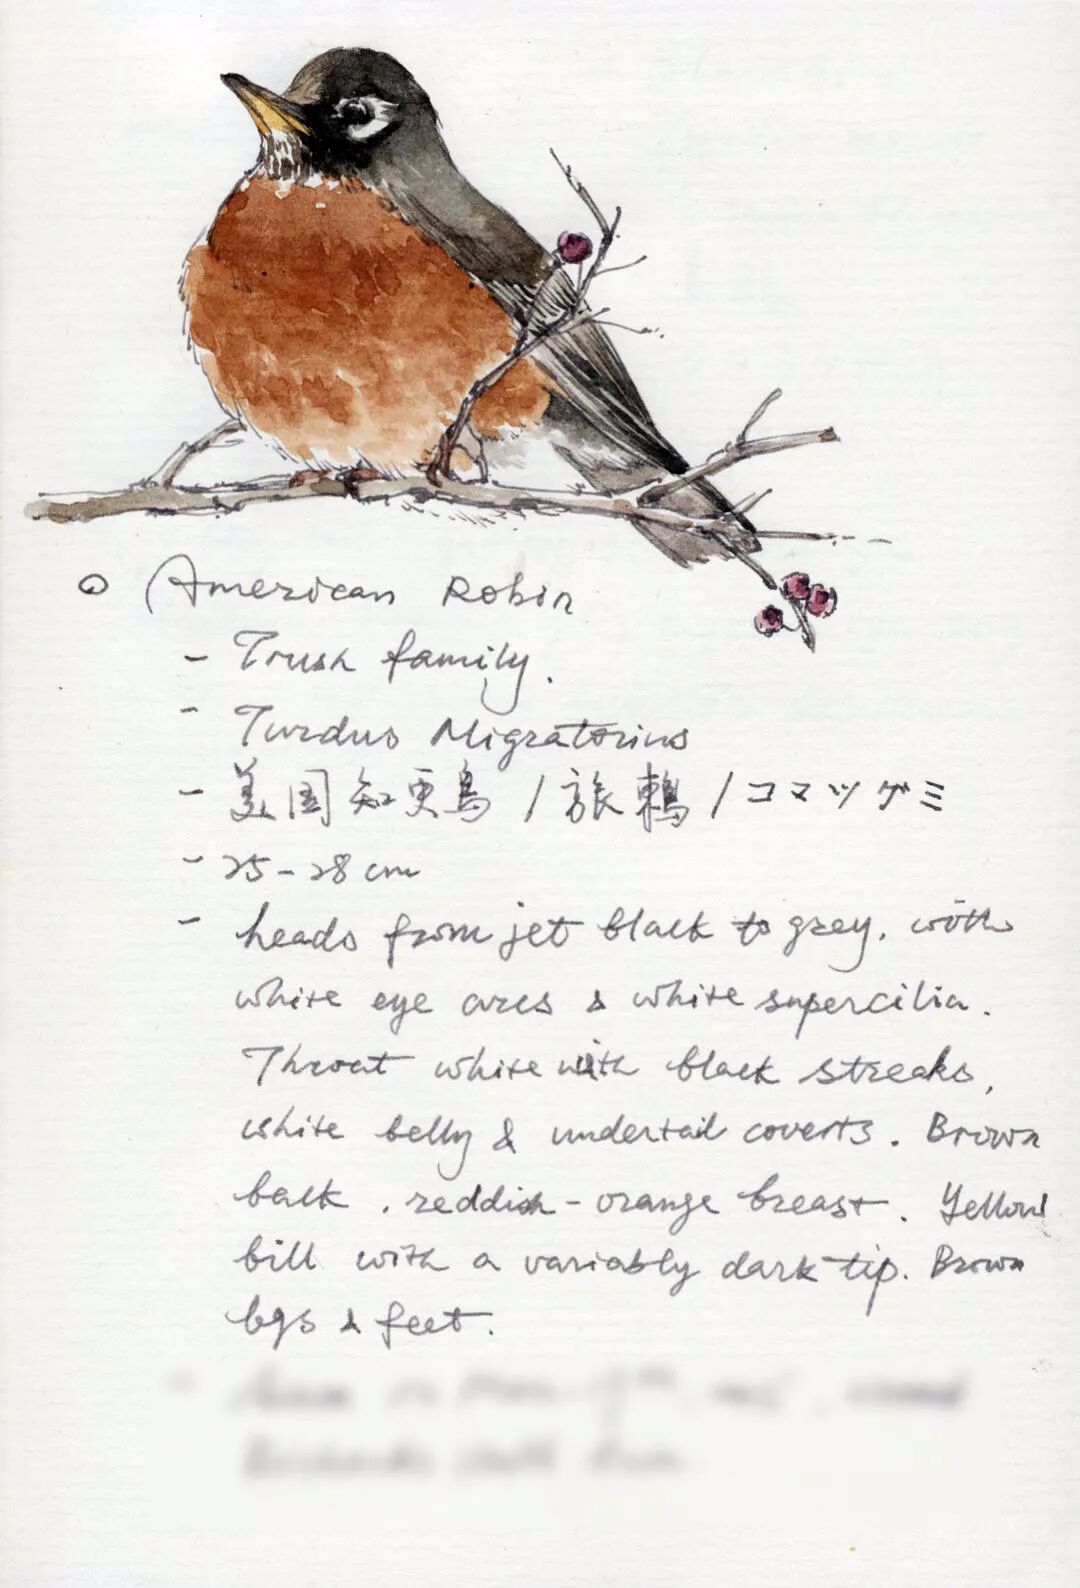 American Robin
- Trush family.
- Turdus Migratorius
- 美国知更鸟 / 旅鶇 / コマツグミ
- 25-28 cm
- heads from jet black to grey. with
white eye arcs & white supercilia.
Throat white with black streaks,
white belly & undertail coverts. Brown
back. reddish-orange breast. Yellow
bill with a variably dark tip. Brown
legs & feet.